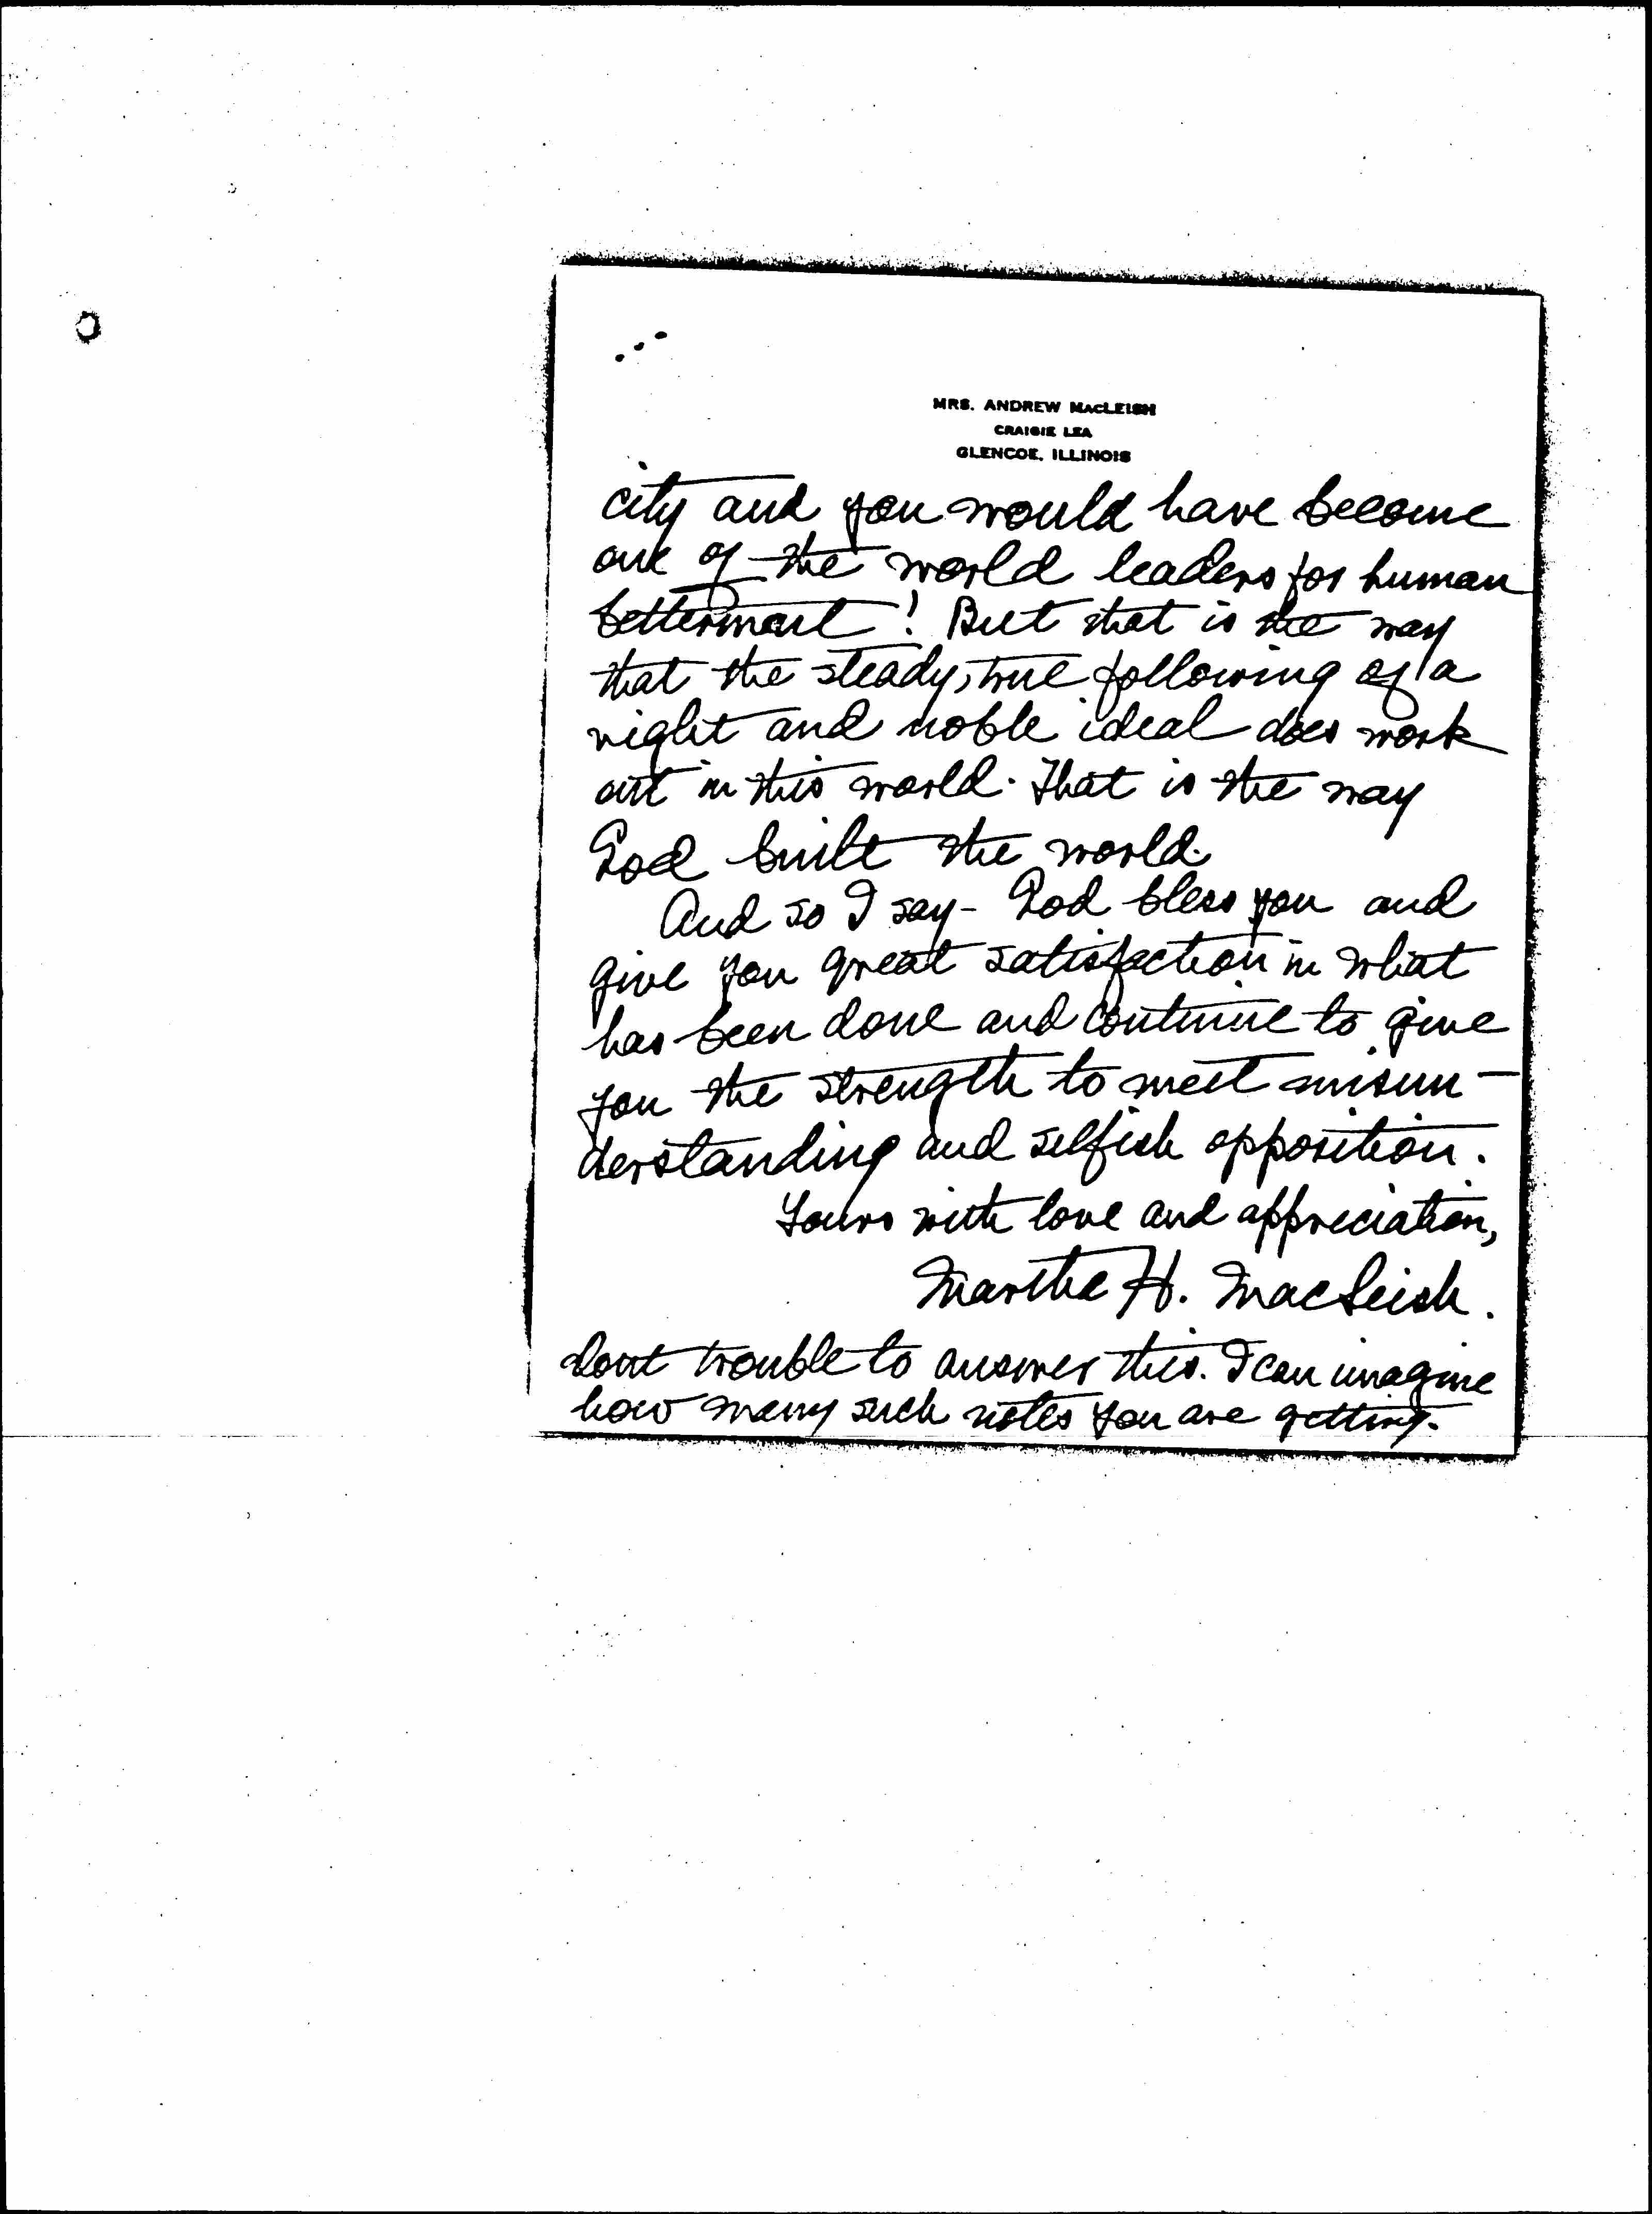 MRS. ANDREW MACLEISH
CRAIGIE LEA
GLENCOE, ILLINOIS
city and you would have become
one of the world leaders for human
betterment! But that is the way
that the steady, true following of a
right and noble ideal does work
out in this world. That is the way
God built the world.
And so I say - God bless you and
give you great satisfaction in what
has been done and continue to give
you the strength to meet misun-
derstanding and selfish opposition.
Yours with love and appreciation,
Martha H. MacLeish.
Dont trouble to answer this. I can imagine
how many such notes you are getting.